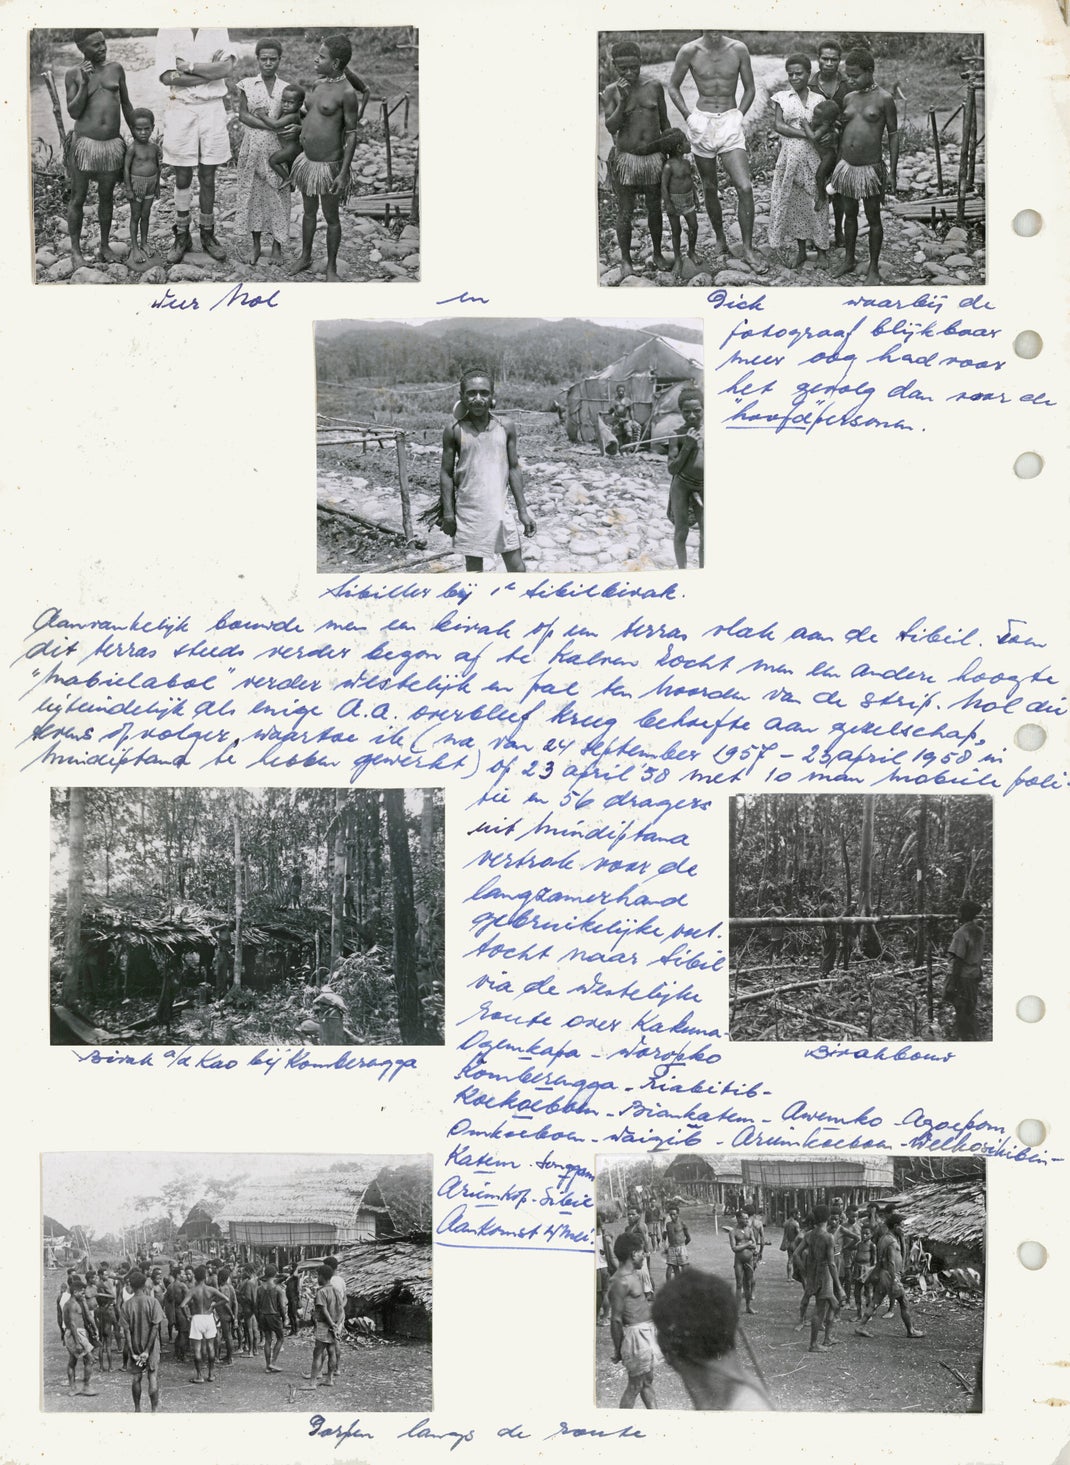 Weer Nol en Dick waarbij de
fotograaf blijkbaar
meer oog had voor
het gevolg dan voor de
"hoofd"personen.
Sibiller bij 1e Sibilbivak.
Aanvankelijk bouwde men een bivak op een terras vlak aan de Sibil. Toen
dit terras steeds verder begon af te kalven zocht men een andere hoogte
"Mabilabol" verder westelijk en pal ten Noorden van de strip. Nol die
uiteindelijk als enige A.A. overbleef kreeg behoefte aan gezelschap,
tevens opvolger, waartoe ik (na van 24 september 1957 - 23 april 1958 in
Mindiptana te hebben gewerkt) op 23 april '58 met 10 man mobiele poli-
tie en 56 dragers
uit Mindiptana
vertrok voor de
langzamerhand
gebruikelijke voet-
tocht naar Sibil
via de Westelijke
Route over Kakuna-
Ogemkapa - Woropko
Komberugga - Riabitib-
Koekoeboen - Biankatem - Awemko - Agoepom
Omkoeboen - Waigib - Ariemkoeboen - Welkosikibin-
Katem -
Ariemkop - Sibil
Aankomst 4 Mei.
Bivak a/d Kao bij Komberugga
Bivakbouw
Dorpen langs de route